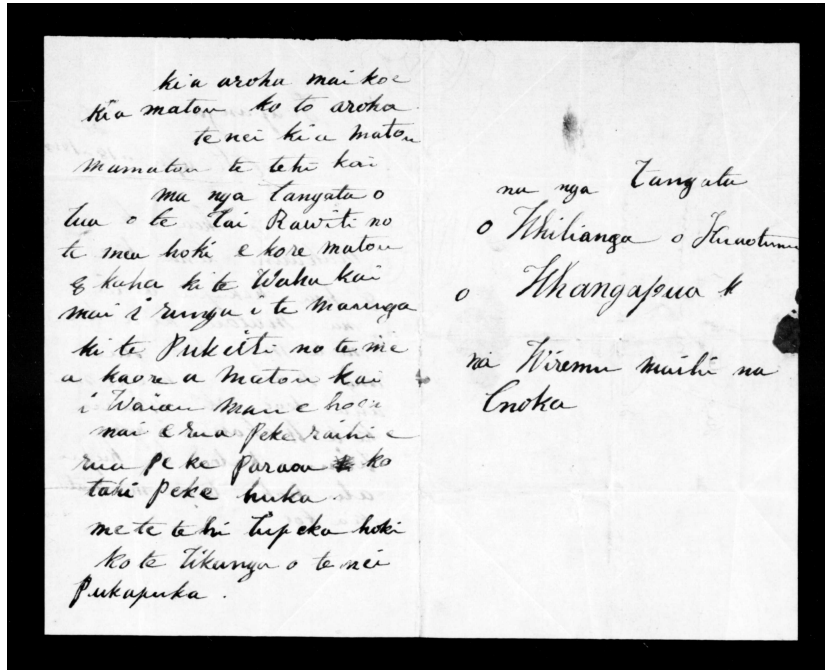 kia aroha mai koe
kia matou ko to aroha
tenei kia matou
mamatou te tehi kai
ma nga tangata o
tua o te Tai Rawiti no
te mea hoki e kore matou
e kaha ki te Waha kai
mai i runga i te maunga
ki te Pukeiti no te me
a kaore a matou kai
i Waiau mau e hoatu
mai e rua peke raihi e
rua pe ke paraoa ko
tahi peke huka.
me te te hi tupeka hoki
ko te tikanga o te nei
Pukapuka.
na nga tangata
o Whitianga o Kuaotunu
o Whangapua
na Wiremu maihi na
Enoka